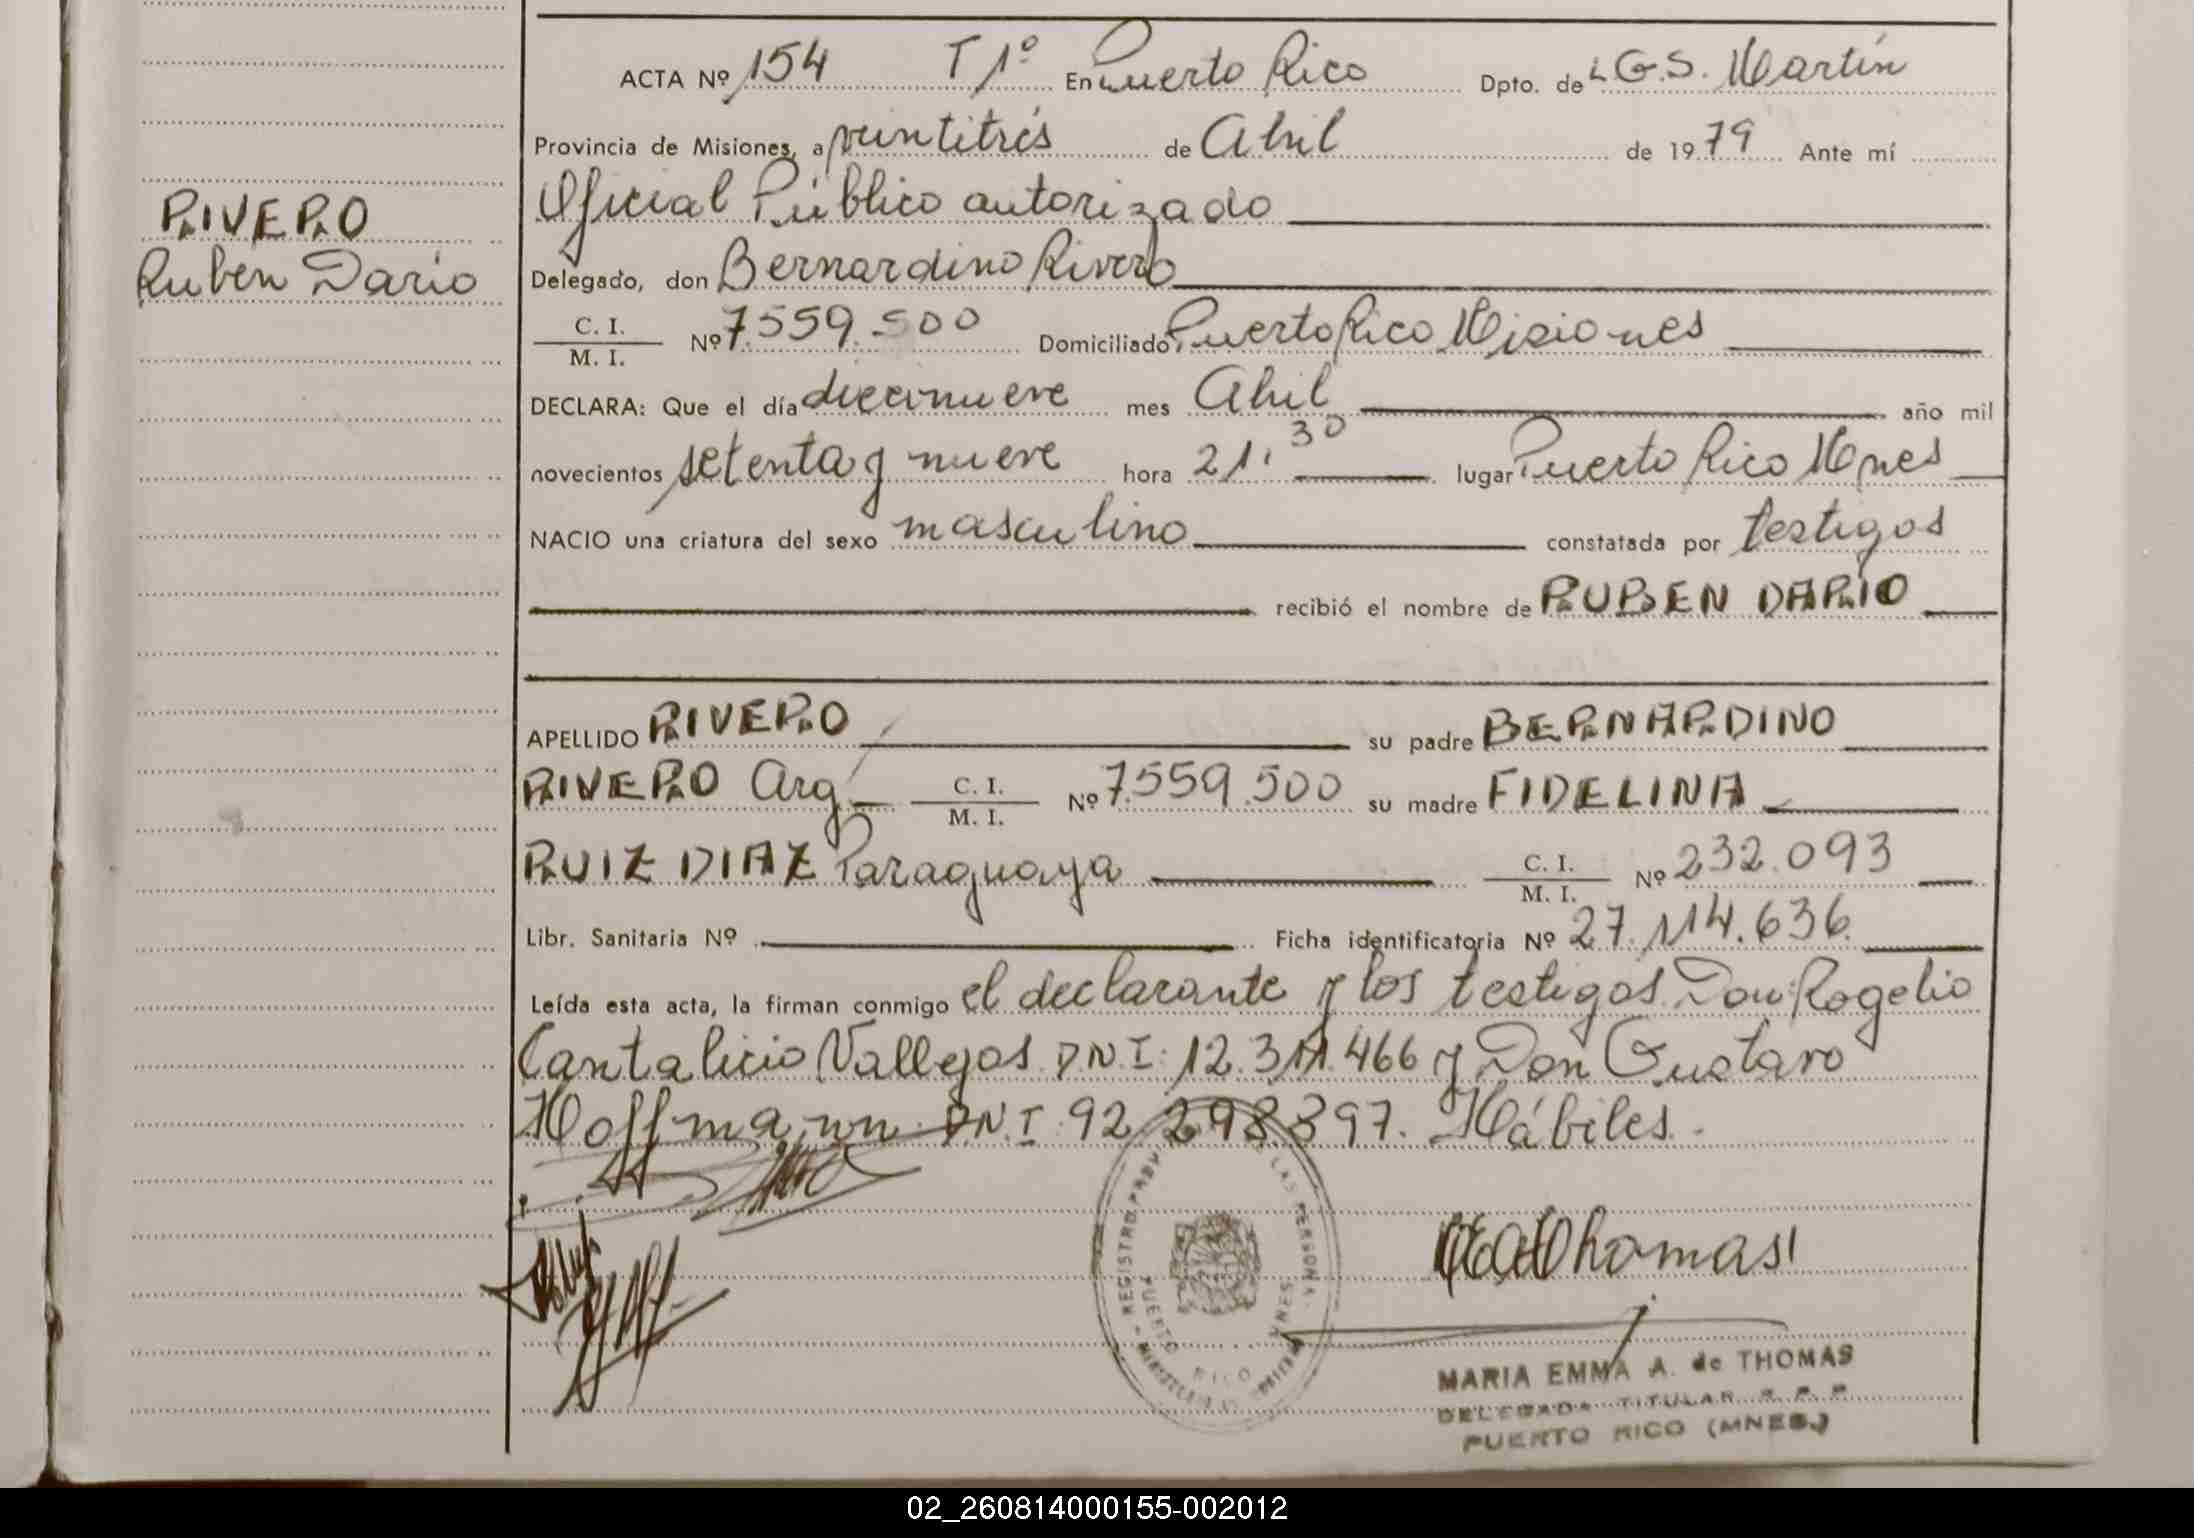 ACTA Nº 154 T 1º En Puerto Rico Dpto. de L.G.S. Martín
Provincia de Misiones, a veintitrés de Abril de 1979 Ante mí
Oficial Público autorizado
RIVERO
Ruben Dario
Delegado, don Bernardino Rivero
C. I. / M. I. Nº 7.559.500 Domiciliado Puerto Rico Misiones
DECLARA: Que el día diecinueve mes Abril año mil
novecientos setenta y nueve hora 21,30 lugar Puerto Rico Mnes
NACIO una criatura del sexo masculino constatada por testigos
recibió el nombre de RUBEN DARIO
APELLIDO RIVERO su padre BERNARDINO
RIVERO Arg C. I. / M. I. Nº 7.559.500 su madre FIDELINA
RUIZ DIAZ Paraguaya C. I. / M. I. Nº 232.093
Libr. Sanitaria Nº Ficha identificatoria Nº 27.114.636
Leída esta acta, la firman conmigo el declarante y los testigos Don Rogelio
Cantalicio Vallejos D.N.I: 12.311.466 y Don Gustavo
Hoffmann D.N.I: 92.298.397. Hábiles.
REGISTRO PROV. DE LAS PERSONAS
PUERTO RICO MNES
MEAdeThomas
MARIA EMMA A. de THOMAS
DELEGADA TITULAR R. P. P.
PUERTO RICO (MNES.)
02_260814000155-002012